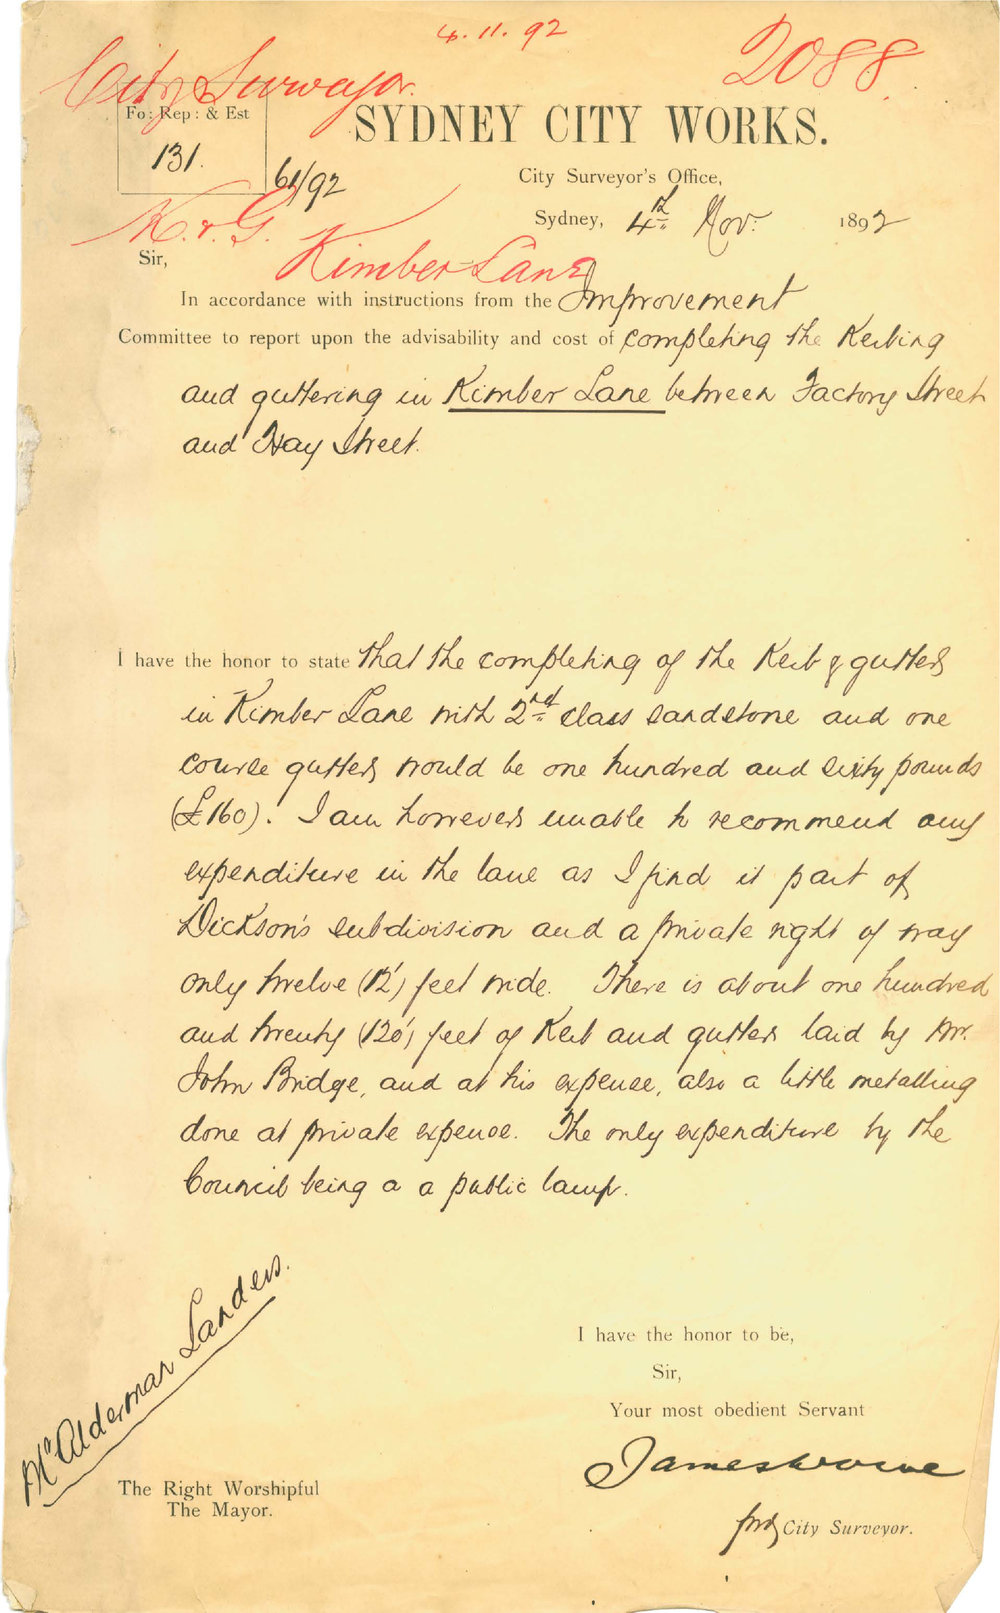 4.11.92
2088
City Surveyor.
Fo: Rep: & Est
131.
61/92
SYDNEY CITY WORKS.
City Surveyor's Office,
Sydney, 4th Nov: 1892
K. & G.
Kimber Lane
Sir,
In accordance with instructions from the Improvement
Committee to report upon the advisability and cost of completing the Kerbing
and guttering in Kimber Lane between Factory Street
and Hay Street.
I have the honor to state that the completing of the Kerb & gutters
in Kimber Lane with 2nd class sandstone and one
course gutters would be one hundred and sixty pounds
(£160). I am however unable to recommend any
expenditure in the lane as I find it part of
Dickson's subdivision and a private right of way
only twelve (12') feet wide. There is about one hundred
and twenty (120') feet of Kerb and gutter laid by Mr.
John Bridge, and at his expense, also a little metalling
done at private expense. The only expenditure by the
Council being a a public lamp.
Mr Alderman Landers.
I have the honor to be,
Sir,
Your most obedient Servant
The Right Worshipful
The Mayor.
City Surveyor.